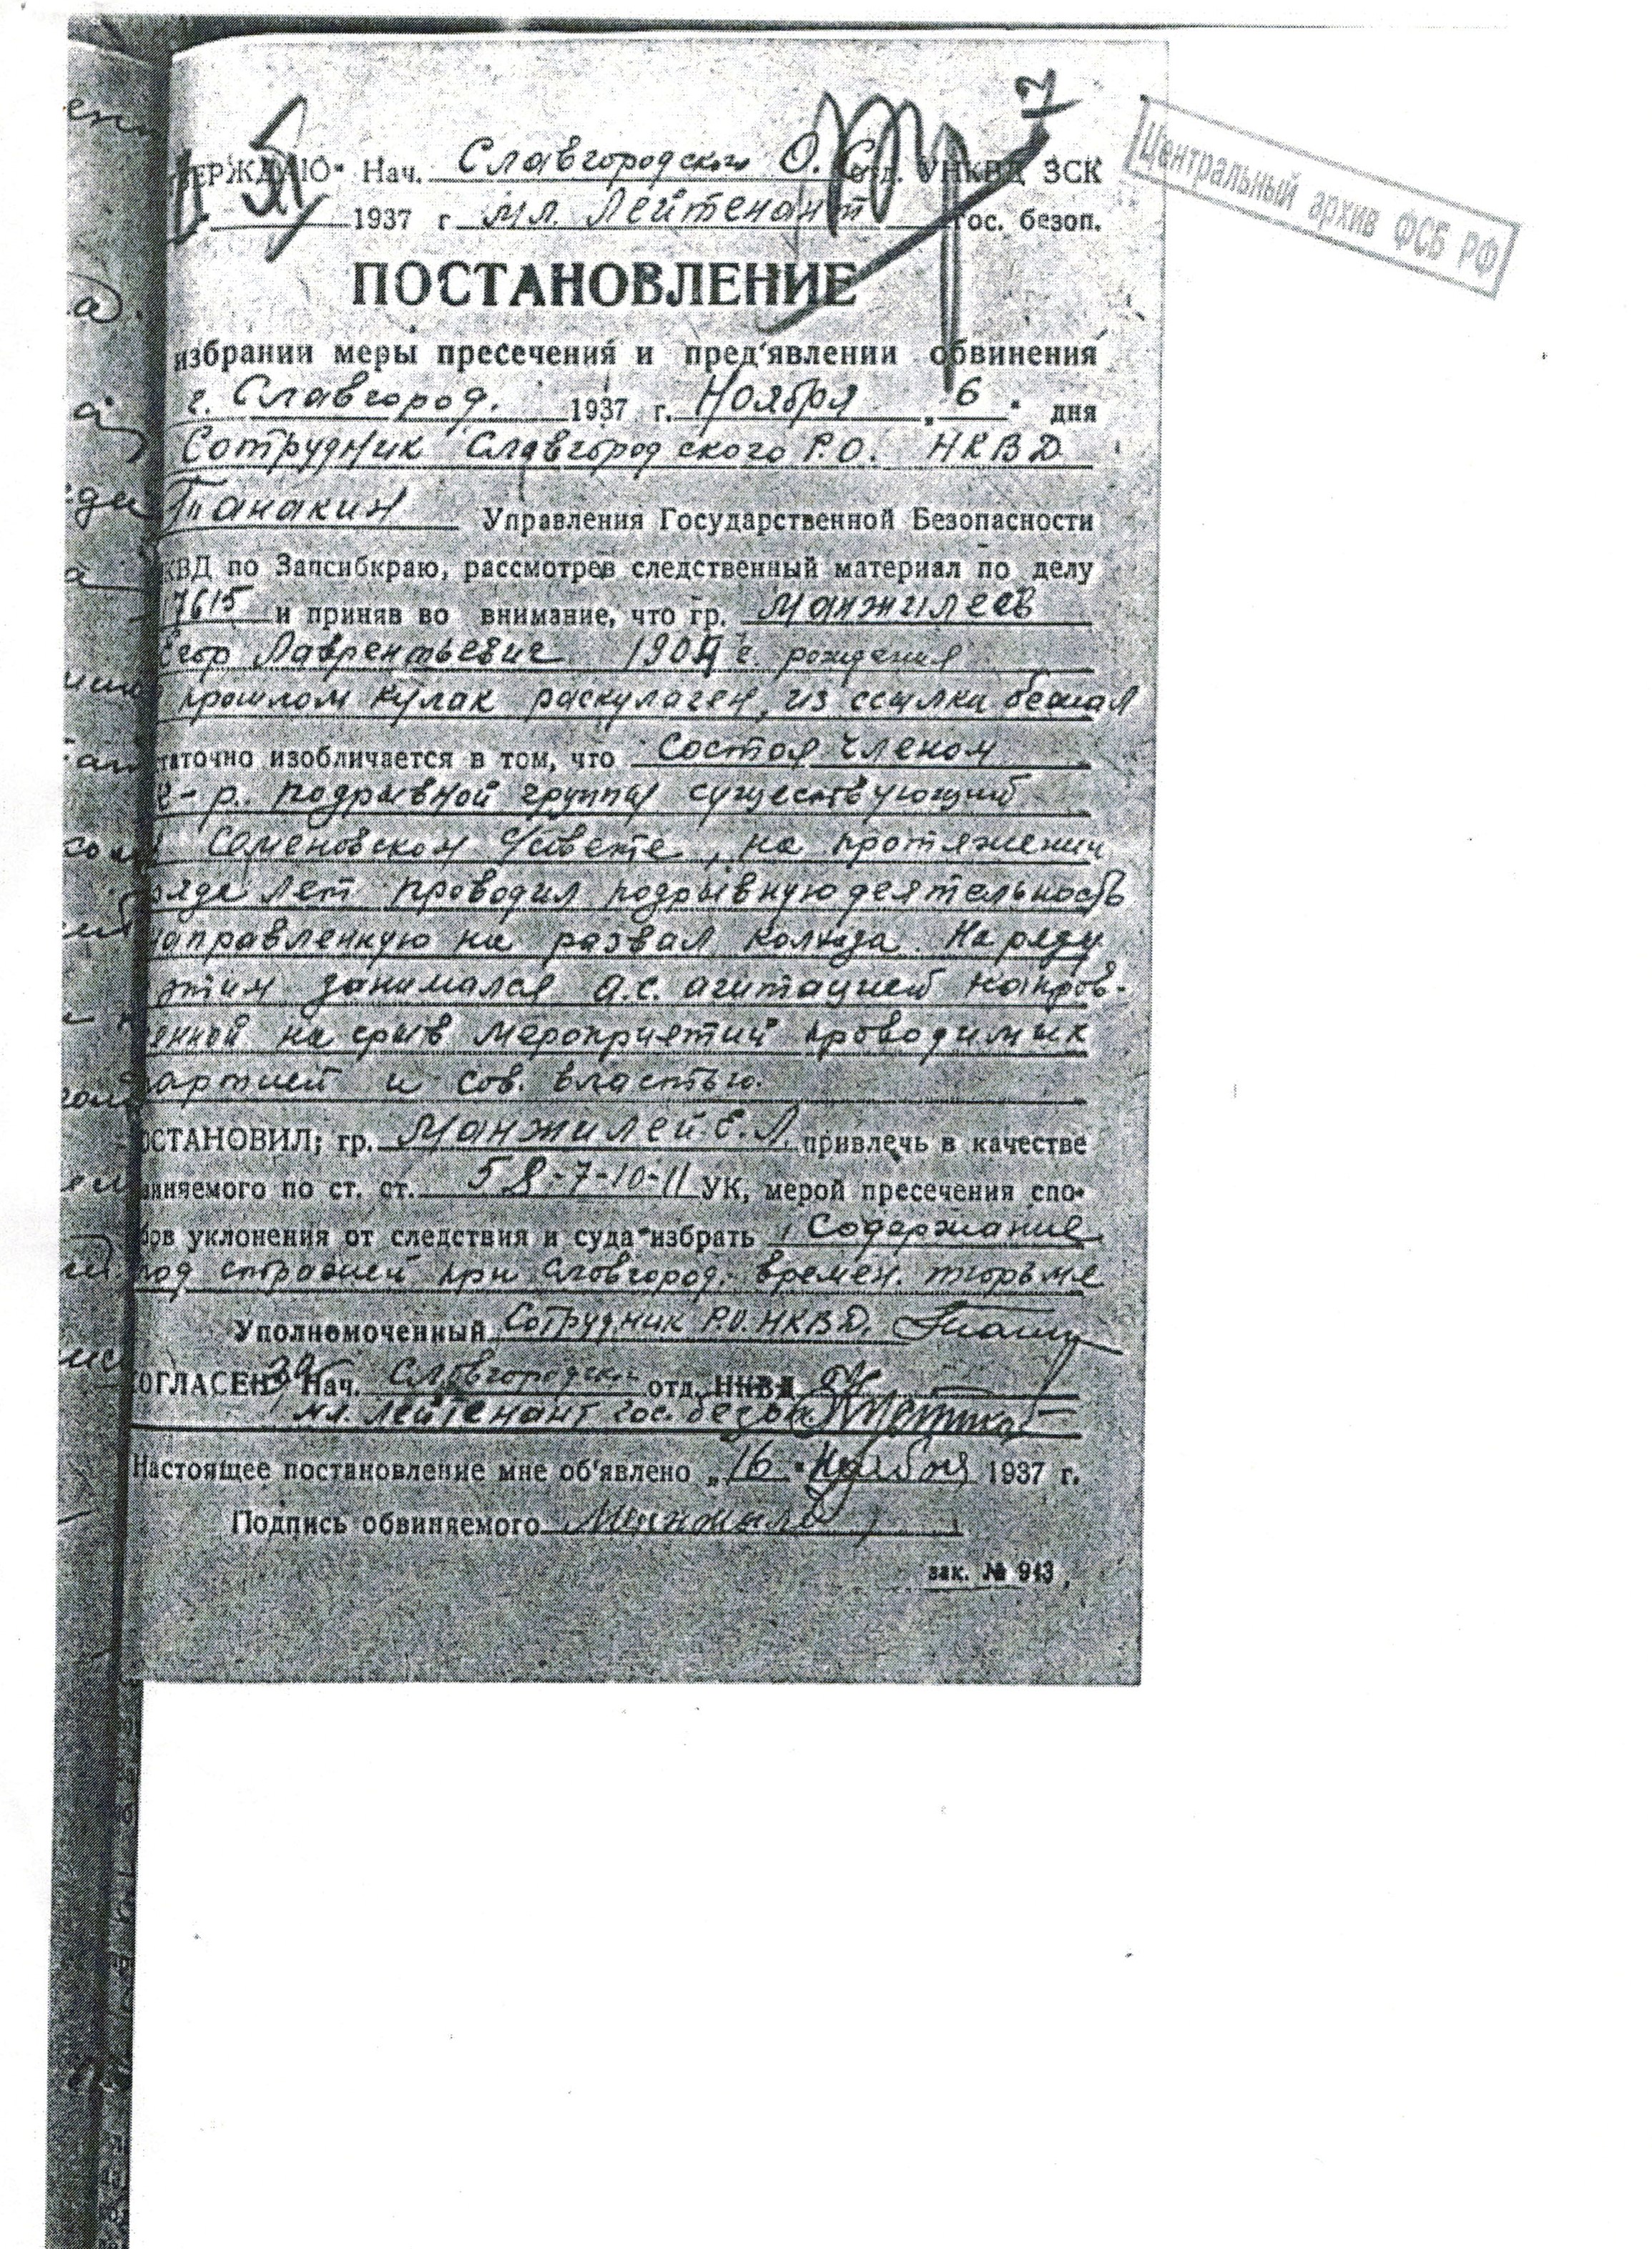 7
Центральный архив ФСБ РФ
ЕРЖДАЮ" Нач. Славгородского О. С. отд. УНКВД ЗСК
1937 г мл. Лейтенант Гос. безоп.
ПОСТАНОВЛЕНИЕ
избрании меры пресечения и пред'явлении обвинения
г. Славгород. 1937 г. Ноября „6" дня
Сотрудник Славгородского Р.О. НКВД
Танакин Управления Государственной Безопасности
КВД по Запсибкраю, рассмотрев следственный материал по делу
17615 и приняв во внимание, что гр. Манжилеев
Егор Лаврентьевич 1909 г. рождения
прошлом кулак раскулачен, из ссылки бежал
таточно изобличается в том, что состоя членом
к-р. подрывной группы существующий
Семеновском с/совете, на протяжении
ряде лет проводил подрывную деятельность
направленную на развал колхоза. На ряду
этим занимался а.с. агитацией направ-
енной на срыв мероприятий проводимых
партией и сов. властью.
ОСТАНОВИЛ; гр. Манжилей Е. Л. привлечь в качестве
виняемого по ст. ст. 58-7-10-11 УК, мерой пресечения спо-
бов уклонения от следствия и суда избрать содержание
под стражей при Славгород. времен. тюрьме
Уполномоченный Сотрудник Р.О. НКВД.
ОГЛАСЕН Нач. Славгородск отд. НКВД
мл. лейтенант гос. безоп.
Настоящее постановление мне об'явлено „16" Ноября 1937 г.
Подпись обвиняемого Манжиле
зак. № 943